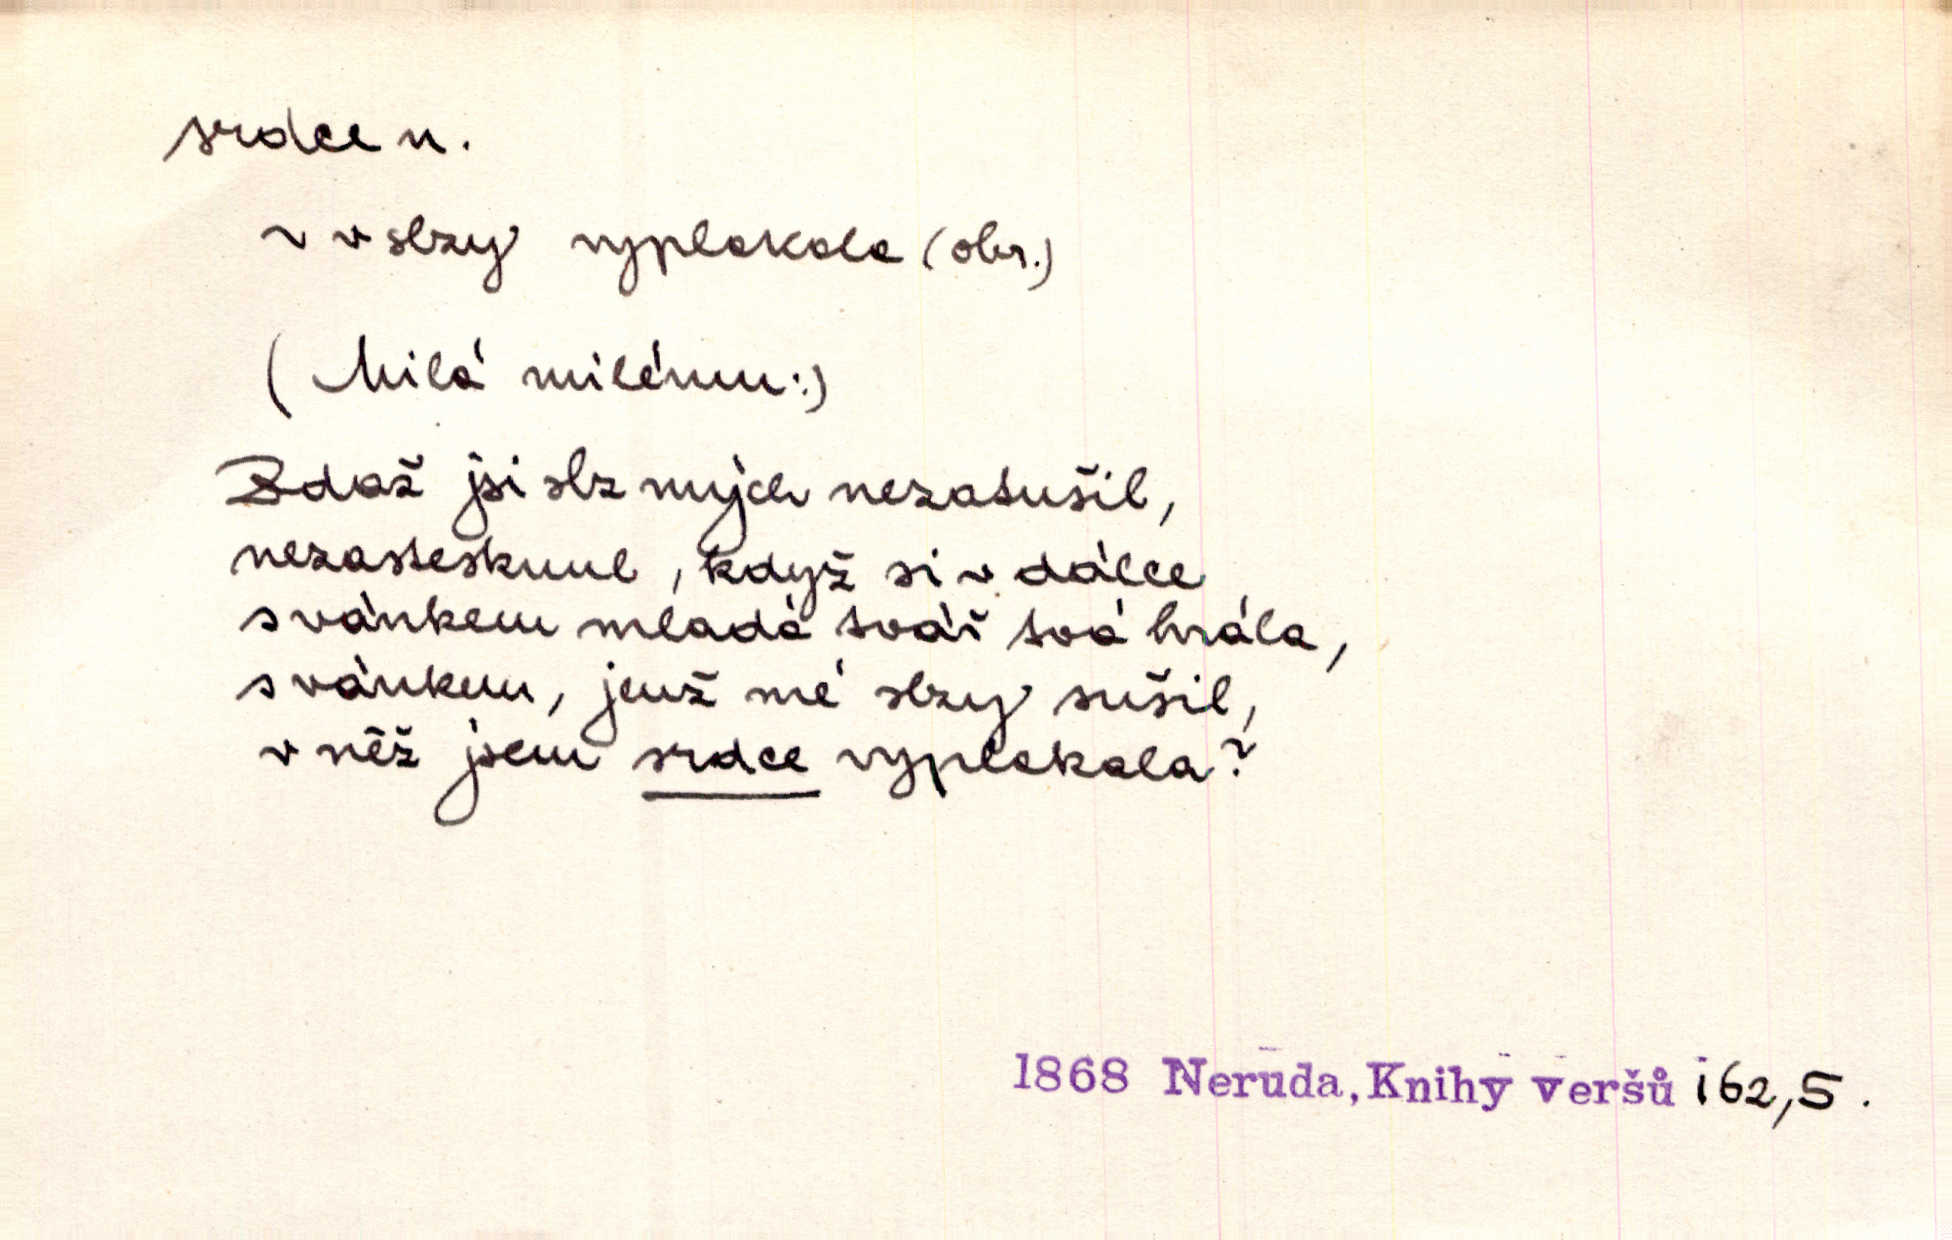 srdce n.
v v slzy vyplakala (obr.)
(Milá milému:)
Zdaž jsi slz mých nezatušil,
nezastesknul, když si v dálce
s vánkem mladá tvář tvá hrála,
s vánkem, jenž mé slzy sušil,
v něž jsem srdce vyplakala?
1868 Neruda, Knihy veršů 162,5.